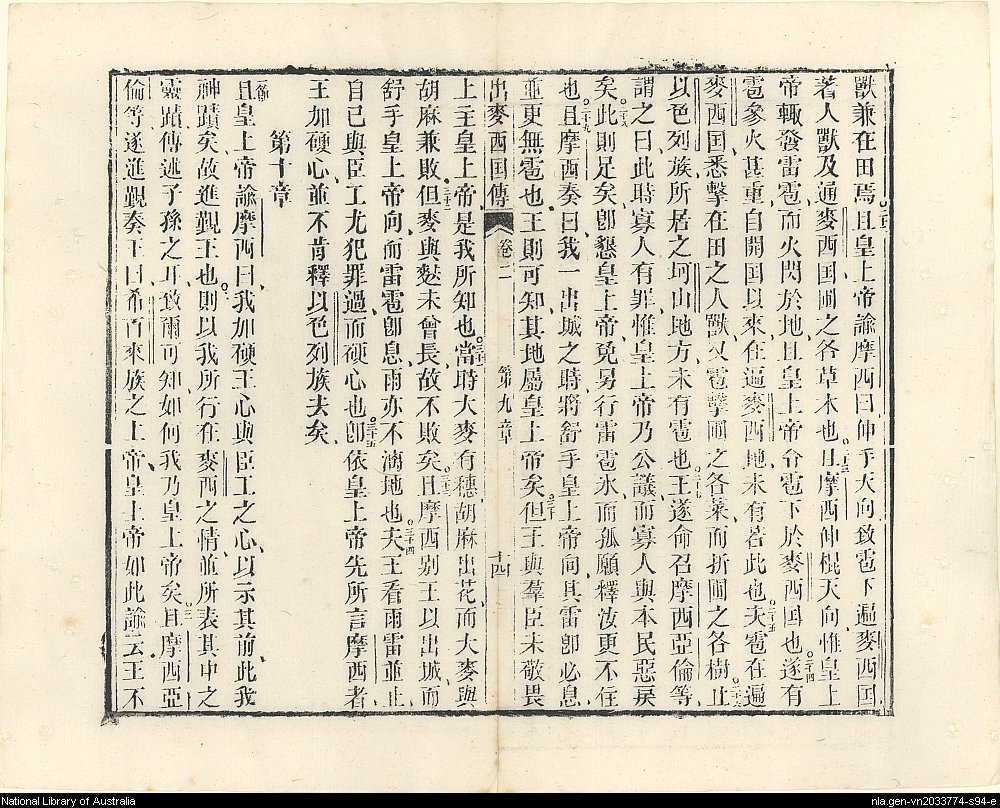 獸兼在田焉。二十二且皇上帝諭摩西曰、伸手天向致雹下遍麥西國
著人獸及通麥西国圃之各草木也。二十三且摩西伸棍天向惟皇上
帝輙發雷雹、而火閃於地、且皇上帝令雹下於麥西国也。二十四遂有
雹參火甚重、自開国以來、住逼麥西地未有若此也。二十五夫雹在遍
麥西国、悉擊在田之人獸、又雹擊圃之各菜、而折圃之各樹、止。二十六
以色列族、所居之坷山地方、未有雹也。二十七王遂命召摩西亞倫等、
謂之曰此時寡人有罪、惟皇上帝乃公議、而寡人與本民惡戾
矣。二十八此則足矣、卽懇皇上帝、免另行雷雹氷、而孤願釋汝更不住
也。二十九且摩西奏曰、我一出城之時、將舒手皇上帝向、其雷卽必息、
並更無雹也、王則可知、其地屬皇上帝矣。三十但王與羣臣未敬畏
出麥西国傳 卷二 第九章 十四
上主皇上帝、是我所知也。三十一當時大麥有穗、胡麻出花、而大麥與
胡麻兼敗。三十二但麥與麩未曾長、故不敗矣。三十三且摩西別王以出城、而
舒手皇上帝向、而雷雹卽息、雨亦不滴地也。三十四夫王看雨雷並止、
自己與臣工尤犯罪過、而硬心也。三十五卽依皇上帝先所言摩西者、
王加硬心、並不肯釋以色列族去矣、
第十章
一節且皇上帝諭摩西曰、我加硬王心與臣工之心、以示其前、此我
神蹟矣、故進覲王也。二則以我所行在麥西之情、並所表其中之
靈蹟、傳述子孫之耳、致爾可知、如何我乃皇上帝矣。三且摩西亞
倫等遂進覲奏王曰、希百來族之上帝、皇上帝如此諭云、王不
National Library of Australia
nla.gen-vn2033774-s94-e